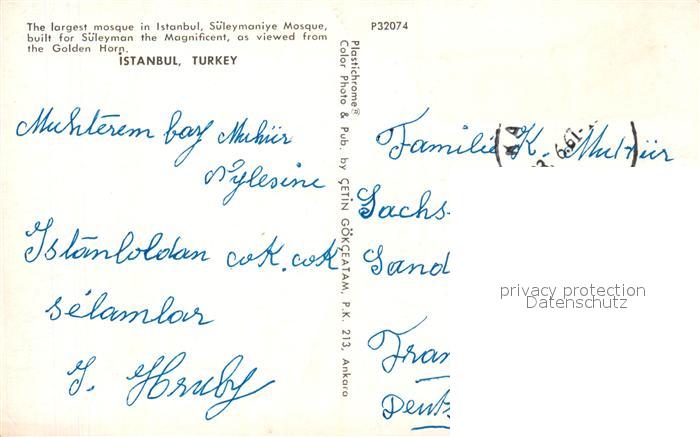 The largest mosque in Istanbul, Süleymaniye Mosque,
built for Süleyman the Magnificent, as viewed from
the Golden Horn.
İSTANBUL, TURKEY
P32074
Plastichrome®
Color Photo & Pub. by ÇETİN GÖKÇEATAM, P.K. 213, Ankara
Muhterem bay Muhür
Aylesine
Istanboldan cok. cok
selamlar
J. Hruby
Familie K. Muhür
Sachs-
Land
Fran
Deut
privacy protection
Datenschutz